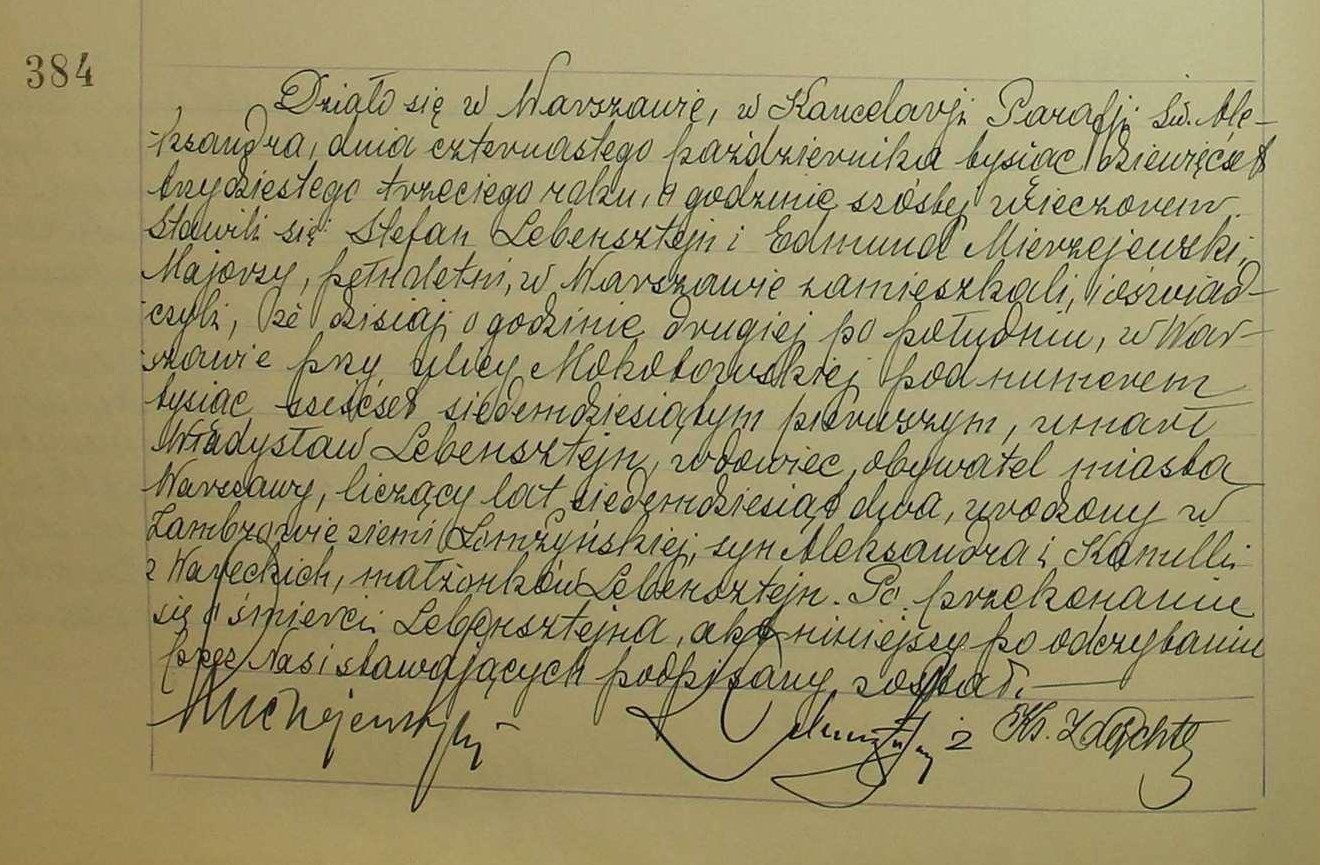 384
Działo się w Warszawie, w Kancelarji Parafji Św. Ale-
ksandra, dnia czternastego października tysiąc dziewięćset
trzydziestego trzeciego roku, o godzinie szóstej wieczorem.
Stawili się: Stefan Lebensztejn i Edmund Mierzejewski,
Majorzy, pełnoletni, w Warszawie zamieszkali, i oświad-
czyli, że dzisiaj o godzinie drugiej po południu, w War-
szawie przy ulicy Mokotowskiej pod numerem
tysiąc sześćset siedemdziesiątym pierwszym, umarł
Władysław Lebensztejn, wdowiec, obywatel miasta
Warszawy, liczący lat siedemdziesiąt dwa, urodzony w
Zambrowie ziemi Łomżyńskiej, syn Aleksandra i Kamilli
z Wareckich, małżonków Lebensztejn. Po przekonaniu
się o śmierci Lebensztejna, akt niniejszy po odczytaniu
przez Nas i stawających podpisany został.
Ks.